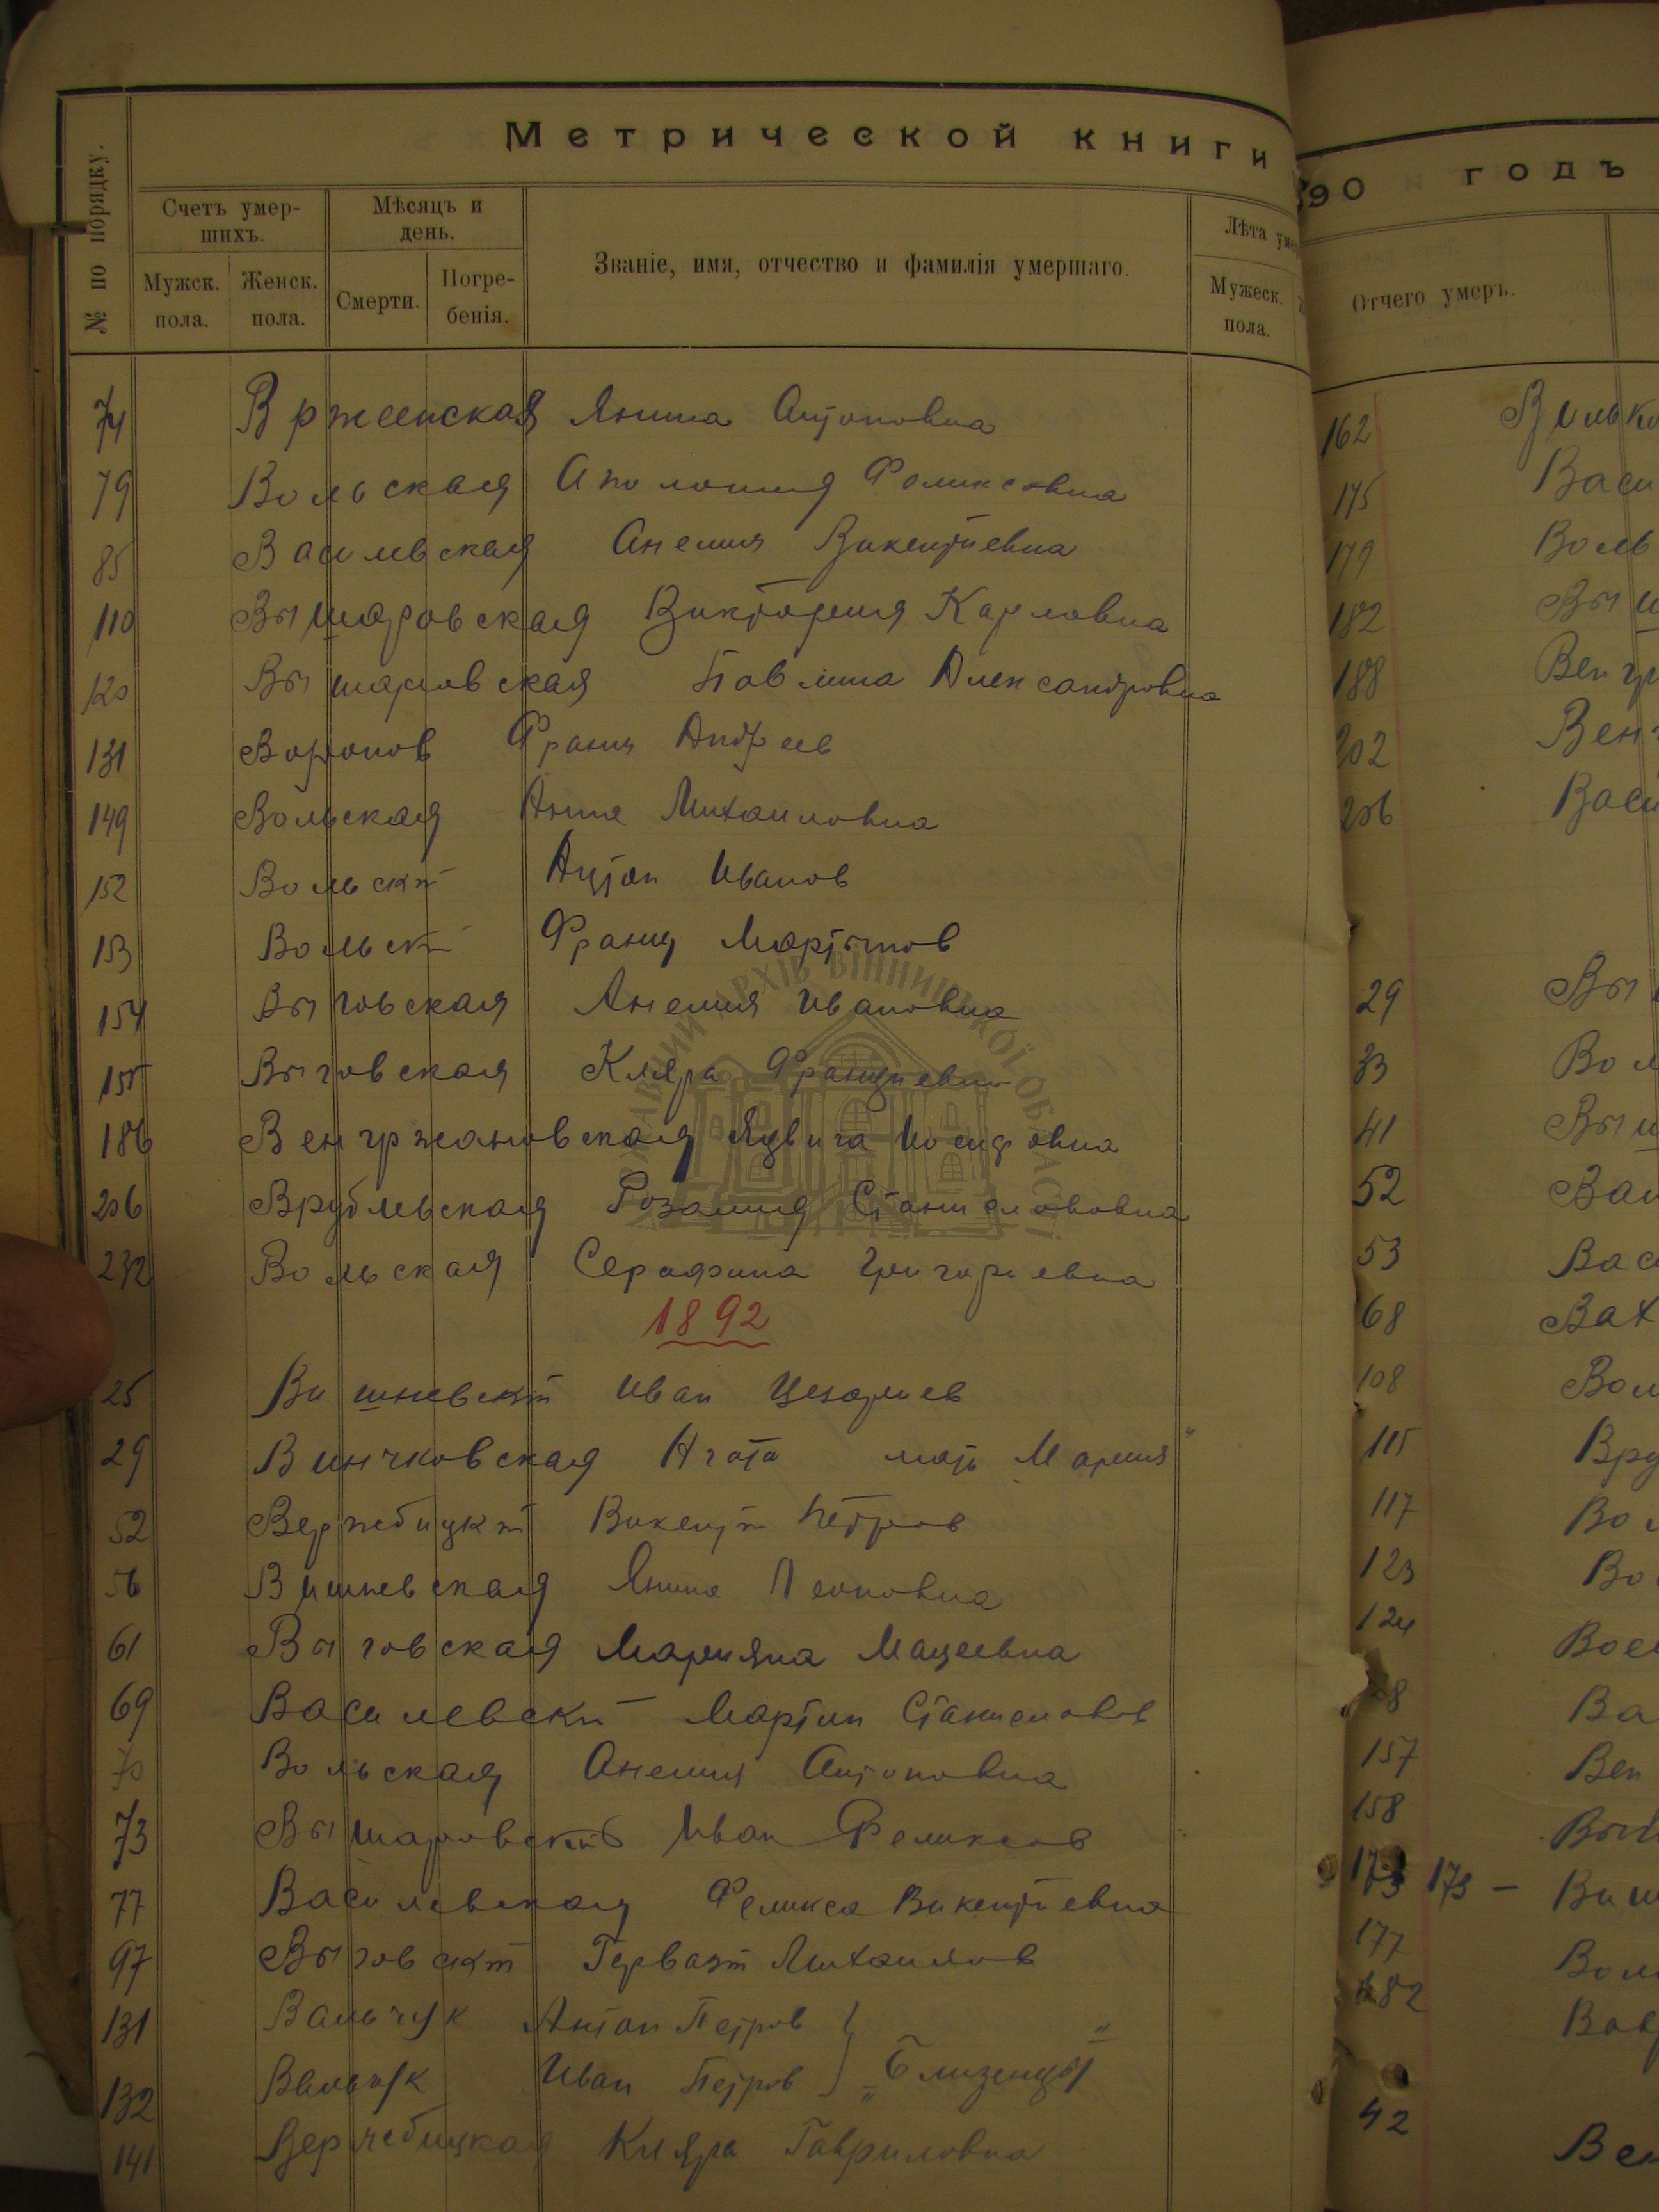 Метрической книги
№ по порядку.
Счетъ умер-
шихъ.
Мѣсяцъ и
день.
Званіе, имя, отчество и фамилія умершаго.
Лѣта
Мужск.
пола.
Женск.
пола.
Смерти.
Погре-
бенія.
Мужеск.
пола.
74 Врженская Янина Антоновна
79 Вольская Аполония Феликсовна
85 Васильвская Анелия Викентиевна
110 Вышаровская Виктория Карловна
120 Вышаровская Павлина Александровна
131 Воронов Франц Андреев
149 Вольская Анна Михаиловна
152 Вольскій Антон Иванов
153 Вольскі Франц Мартинов
154 Выговская Анелия Ивановна
155 Выговская Кляра Франциевна
186 Венгржановская Ядвига Иосифовна
206 Врублевская Розалия Станиславовна
232 Вольская Серафина Григориевна
1892
25 Вишневскій Иван Цезариев
29 Винчковская Агата мать Мария"
52 Вержебицкій Викентій Петров
56 Вишневская Янина Леоновна
61 Выговская Марияна Мацеевна
69 Василевскі Мартин Станиславов
70 Вольская Анелия Антоновна
73 Вышаровскій Иван Феликсов
77 Василевская Феликса Викентиевна
97 Выговскій Гервазій Михаилов
131 Вальчук Антон Петров
132 Вальчук Иван Петров } „Близенцы"
141 Вержебицкая Кляра Гавриловна
90 годъ
Отчего умеръ.
162
175 Васи
179 Воль
182 Выш
188 Венгр
202 Венг
206 Васи
29 Вы
33 Вол
41 Выш
52
53 Вас
68 Вах
108
115 Вру
117 Вол
123 Во
124
Ва
157 Вен
158 Выш
173 173 — Виш
177
182
42 Ве
ДЕРЖАВНИЙ АРХІВ ВІННИЦЬКОЇ ОБЛАСТІ